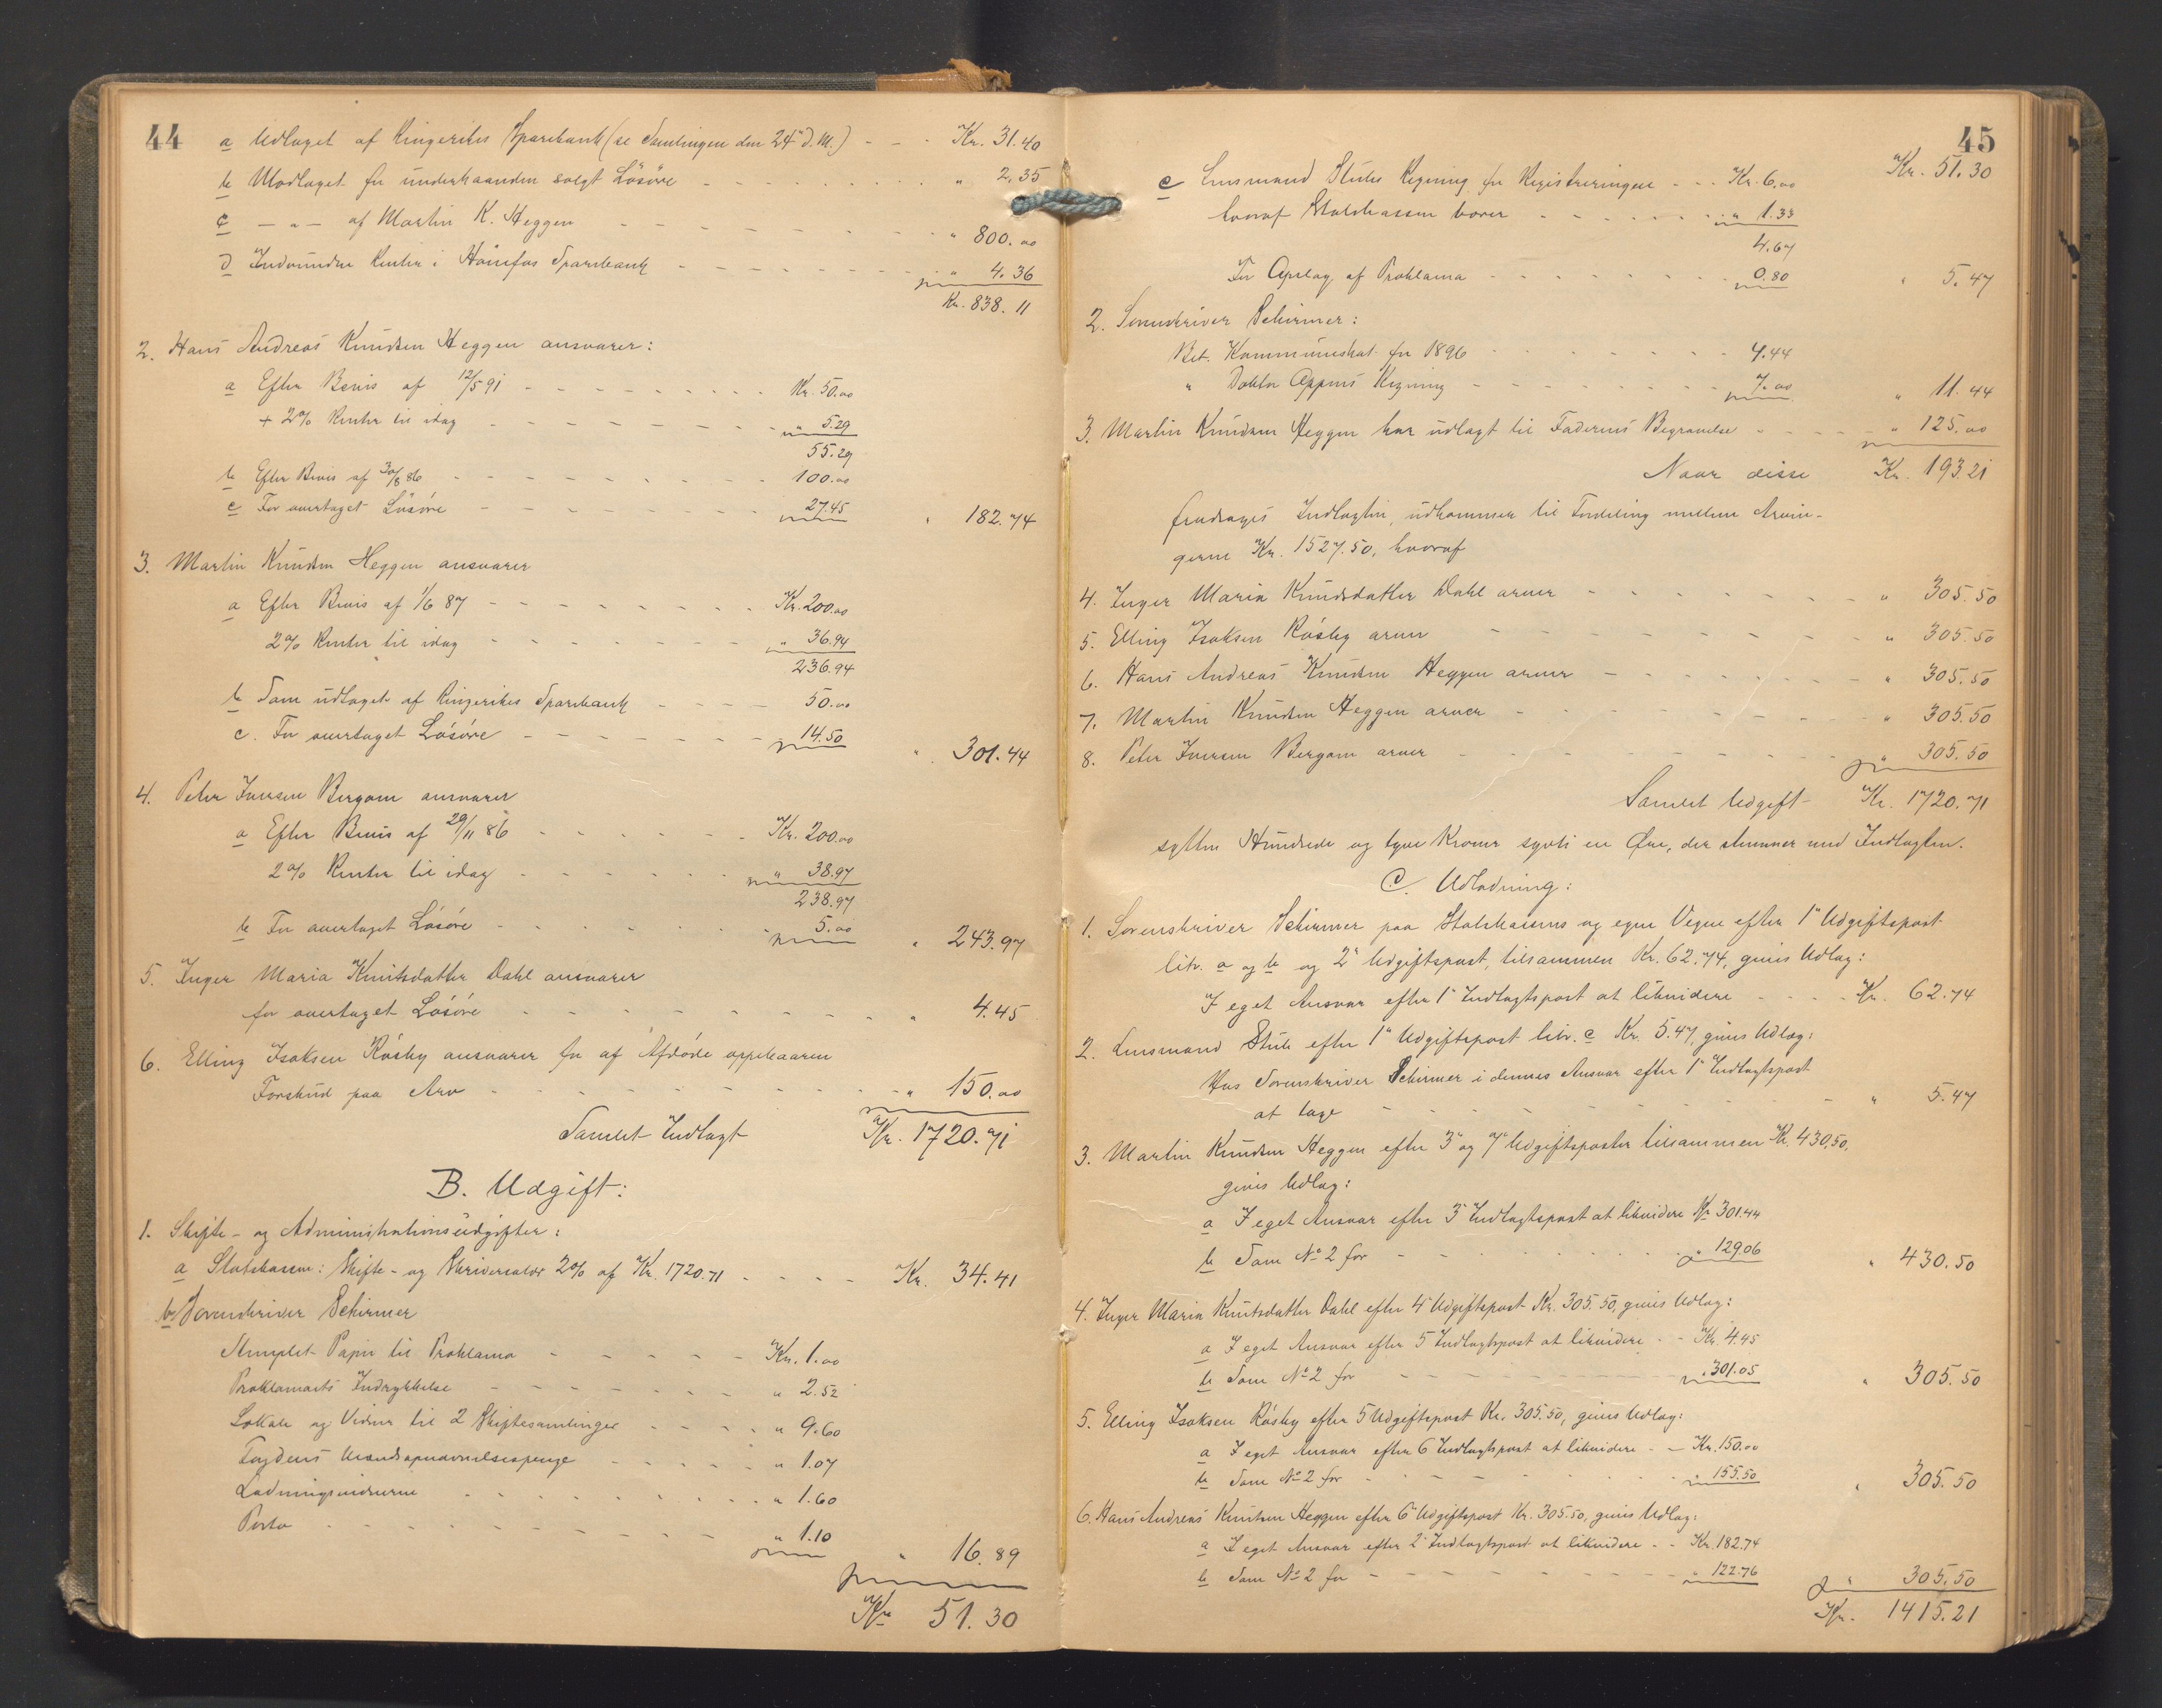 44
a Udtaget af Ringerikes Sparebank (se Samlingen den 24' d. M.) - - Kr. 31.40
b Modtaget for underhaanden solgt Løsøre - - - - " 2,35
c - " - af Martin K. Heggen - - - - " 800.00
d Indvundne Renter i Hønefos Sparebank - - - - " 4.36
Kr. 838.11
2. Hans Andreas Knudsen Heggen ansvarer:
a Efter Bevis af 12/5 91 - - - - Kr. 50.00
+ 2% Renter til idag - - - - " 5.29
55.29
b Efter Bevis af 30/8 86 - - - - 100.00
c For overtaget Løsøre - - - - 27.45 " 182.74
3. Martin Knudsen Heggen ansvarer
a Efter Bevis af 1/6 87 - - - - Kr. 200.00
2% Renter til idag - - - - " 36.94
236.94
b Som udtaget af Ringerikes Sparebank - - - - 50.00
c. For overtaget Løsøre - - - - 14.50 " 301.44
4. Peter Iversen Bergom ansvarer
a Efter Bevis af 29/11 86 - - - - Kr. 200.00
2% Renter til idag - - - - " 38.97
238.97
b For overtaget Løsøre - - - - 5.00 " 243.97
5. Inger Maria Knutsdatter Dahl ansvarer
for overtaget Løsøre - - - - " 4.45
6. Elling Isaksen Røsby ansvarer for af Afdøde oppebaaren
Forskud paa Arv - - - - " 150.00
Samlet Indtægt Kr. 1720.71
B. Udgift:
1. Skifte- og Administrationsudgifter:
a Statskassen: Skifte- og Skriversalær 2% af Kr. 1720.71 - - - - Kr. 34.41
b Sorenskriver Schirmer
Stemplet Papir til Proklama - - - - Kr. 1.00
Proklamaets Indrykkelse - - - - " 2.52
Lokale og Vidner til 2 Skiftesamlinger - - - - " 9.60
Fogdens - - - - " 1.07
Lodningsvidnerne - - - - " 1.60
Porto - - - - " 1.10 " 16.89
Kr. 51.30
45
Kr. 51.30
c Lensmand Stubs Regning for Registreringen - - - Kr. 6.00
hvoraf Statskassen bærer - - - - " 1.33
4.67
For Opslag af Proklama - - - - 0.80 " 5.47
2. Sorenskriver Schirmer:
Bet. Kommuneskat for 1896 - - - - 4.44
" Doktor Appens Regning - - - - 7.00 " 11.44
3. Martin Knudsen Heggen har udlagt til Faderens Begravelse - - - - " 125.00
Naar disse Kr. 193.21
fradrages Indtægten, udkommer til Fordeling mellem Arvin-
gerne Kr. 1527.50, hvoraf
4. Inger Maria Knudsdatter Dahl arver - - - - " 305.50
5. Elling Isaksen Røsby arver - - - - " 305.50
6. Hans Andreas Knudsen Heggen arver - - - - " 305.50
7. Martin Knudsen Heggen arver - - - - " 305.50
8. Peter Iversen Bergom arver - - - - " 305.50
Samlet Udgift Kr. 1720.71
sytten Hundrede og tyve Kroner sytti en Øre, der stemmer med Indtægten.
C. Udlodning:
1. Sorenskriver Schirmer paa Statskassens og egne Vegne efter 1' Udgiftspost
litr. a og b og 2' Udgiftspost, tilsammen Kr. 62.74, gives Udlæg:
I eget Ansvar efter 1' Indtægtspost at likvidere - - - - Kr. 62.74
2. Lensmand Stub efter 1' Udgiftspost litr. c Kr. 5.47, gives Udlæg:
Hos Sorenskriver Schirmer i dennes Ansvar efter 1' Indtægtspost
at tage - - - - " 5.47
3. Martin Knudsen Heggen efter 3' og 7' Udgiftsposter tilsammen Kr. 430,50,
gives Udlæg:
a I eget Ansvar efter 3' Indtægtspost at likvidere Kr. 301.44
b Som No 2 for - - - - " 129.06 " 430.50
4. Inger Maria Knutsdatter Dahl efter 4' Udgiftspost Kr. 305.50, gives Udlæg:
a I eget Ansvar efter 5' Indtægtspost at likvidere - - Kr. 4.45
b Som No 2 for - - - - " 301.05 " 305.50
5. Elling Isaksen Røsby efter 5' Udgiftspost Kr. 305.50, gives Udlæg:
a I eget Ansvar efter 6' Indtægtspost at likvidere - - Kr. 150.00
b Som No 2 for - - - - " 155.50 " 305.50
6. Hans Andreas Knutsen Heggen efter 6' Udgiftspost Kr. 305.50, gives Udlæg:
a I eget Ansvar efter 2' Indtægtspost at likvidere - - Kr. 182.74
b Som No 2 for - - - - " 122.76 " 305.50
Kr. 1415.21